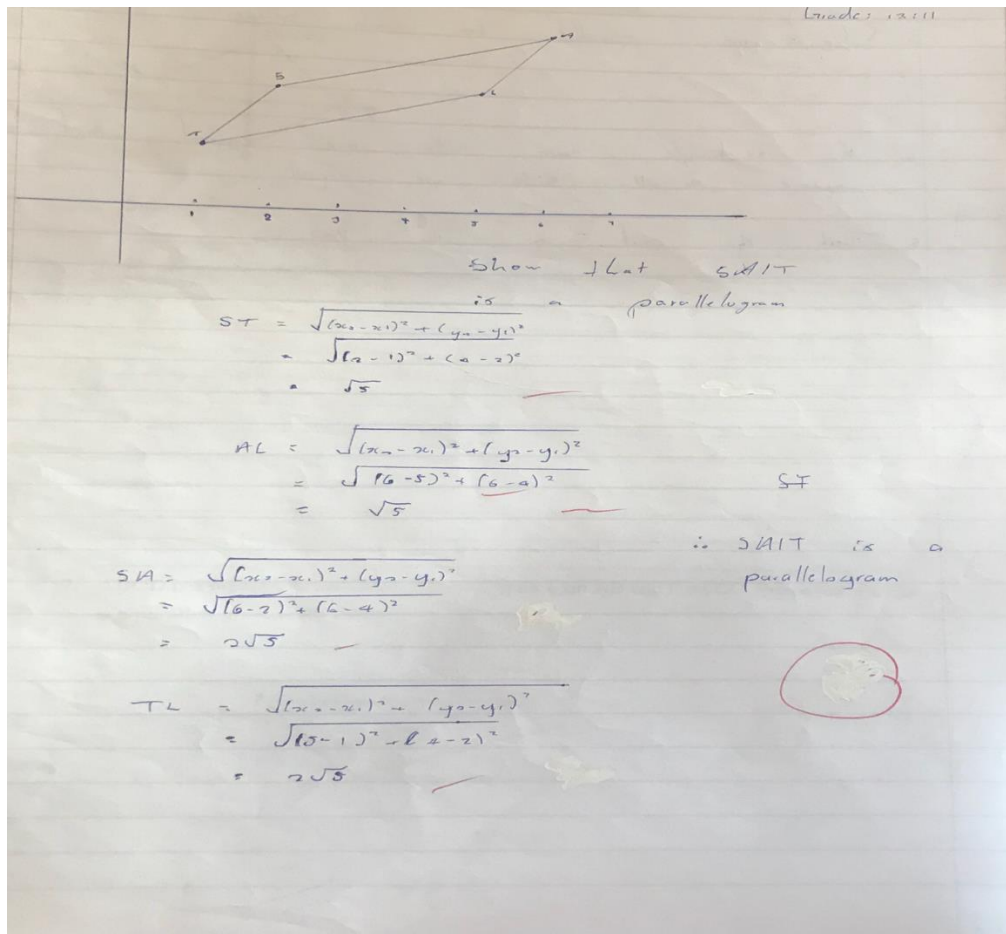 Grade: 12:11
S
A
L
T
1 2 3 4 5 6 7
Show that SALT
is a parallelogram
ST = √(x₂-x₁)² + (y₂-y₁)²
= √(2-1)² + (4-2)²
= √5
AL = √(x₂-x₁)² + (y₂-y₁)²
= √(6-5)² + (6-4)²
= √5
ST
∴ SALT is a
parallelogram
SA = √(x₂-x₁)² + (y₂-y₁)²
= √(6-2)² + (6-4)²
= 2√5
TL = √(x₂-x₁)² + (y₂-y₁)²
= √(5-1)² + (4-2)²
= 2√5